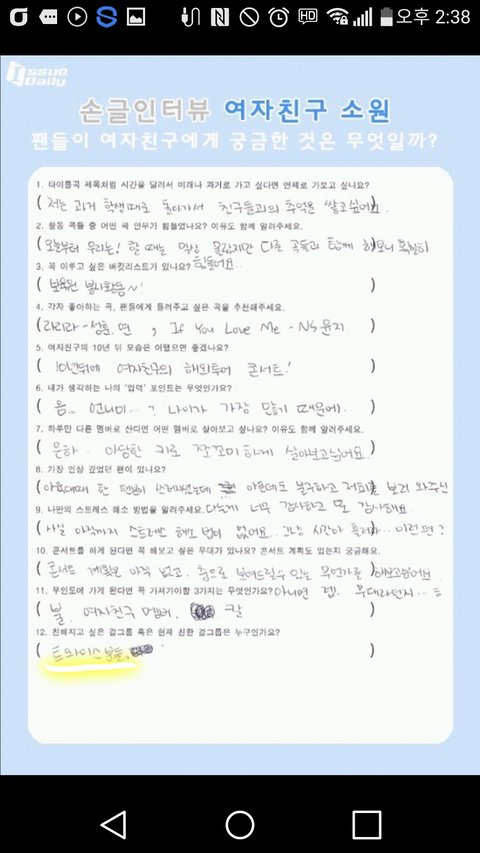 HD 오후 2:38
Issue Daily
손글인터뷰 여자친구 소원
팬들이 여자친구에게 궁금한 것은 무엇일까?
1. 타이틀곡 제목처럼 시간을 달려서 미래나 과거로 가고 싶다면 언제로 가보고 싶나요?
( 저는 과거 학생때로 돌아가서 친구들과의 추억을 쌓고싶어요. )
2. 활동 곡들 중 어떤 곡 안무가 힘들었나요? 이유도 함께 알려주세요.
( 오늘부터 우리는! 할 때는 몰랐지만 다른 곡들과 함께 해보니 확실히
힘들어요..
3. 꼭 이루고 싶은 버킷리스트가 있나요?
( 보육원 봉사활동~! )
4. 각자 좋아하는 곡, 팬들에게 들려주고 싶은 곡을 추천해주세요.
( 라리라 - , If You Love Me - NS 윤지 )
5. 여자친구의 10년 뒤 모습은 어땠으면 좋겠나요?
( 10년뒤에 여자친구의 해외투어 콘서트! )
6. 내가 생각하는 나의 '입덕' 포인트는 무엇인가요?
( 음... 언니미..? 나이가 가장 많기 때문에.. )
7. 하루만 다른 멤버로 산다면 어떤 멤버로 살아보고 싶나요? 이유도 함께 알려주세요.
( 은하. 아담한 키로 쪼꼬미하게 살아보고싶어요. )
8. 가장 인상 깊었던 팬이 있나요?
( 아육대때 한 팬분이 아픈데도 불구하고 저희를 보러 와주신
9. 나만의 스트레스 해소 방법을 알려주세요. 너무 감사하고 또 감사해요.
( 사실 아직까지 스트레스 해소법이 없어요.. 그냥 시간아 흘러라.. 이런편? )
10. 콘서트를 하게 된다면 꼭 해보고 싶은 무대가 있나요? 콘서트 계획도 있는지 궁금해요.
( 콘서트 계획은 아직 없고. 춤으로 보여드릴수 있는 무언가를 해보고싶어요.
11. 무인도에 가게 된다면 꼭 가져가야할 3가지는 무엇인가요? 아니면 랩. 무대라던지..
( 불, 여자친구 멤버, 칼 )
12. 친해지고 싶은 걸그룹 혹은 현재 친한 걸그룹은 누구인가요?
( 트와이스 분들. )